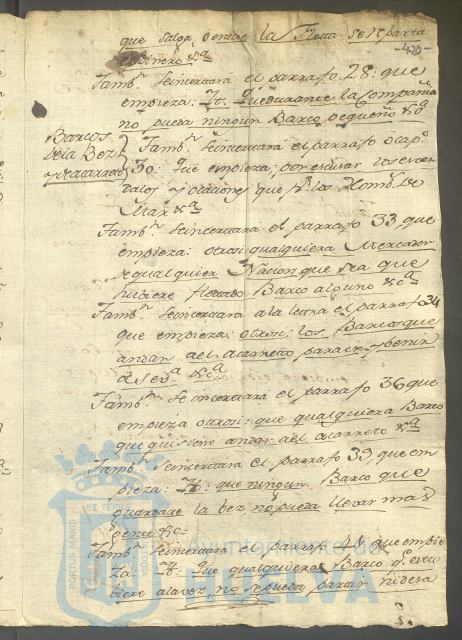 que salga, o entre la Flota se reparta
-420-
el dinero &ª
Tamb.n se incertará el parrafo 28: que
empieza: It. que durante la Compañia
no pueda ningun Barco pequeño &ª
Barcos
de la Bez
y de acarreto
Tamb.n se incertará el parrafo o cap.o
30: que empieza; por escusar los escan-
dalos y ocaciones que p.r los Homb.s de
Mar &ª
Tamb.n se incertará el parrafo 33, que
empieza: otrosi qualquiera Mercader
de qualquier Nacion que sea que
hubiere fletado Barco alguno &ª
Tamb.n se incertará a la letra el parrafo 34
que empieza: otrosi: los Barcos que
andan al acarretto para ir, y benir
a Sev.ª &ª
Tamb.n se incertará el parrafo 36 que
empieza otrosi: que qualquiera Barco
que quisiere andar al acarreto &ª
Tamb.n se incertará el parrafo 39, que em-
pieza: It: que ningun Barco que
guardare la bez, no pueda llevar mas
gente &c
Tamb.n se incertará el parrafo que empie-
za. It. que qualquiera Barco q.e estu-
biere a la vez, no se pueda parar ni desa
PORTUS MARIS
ET TERRÆ
Ayuntamiento de
HUELVA